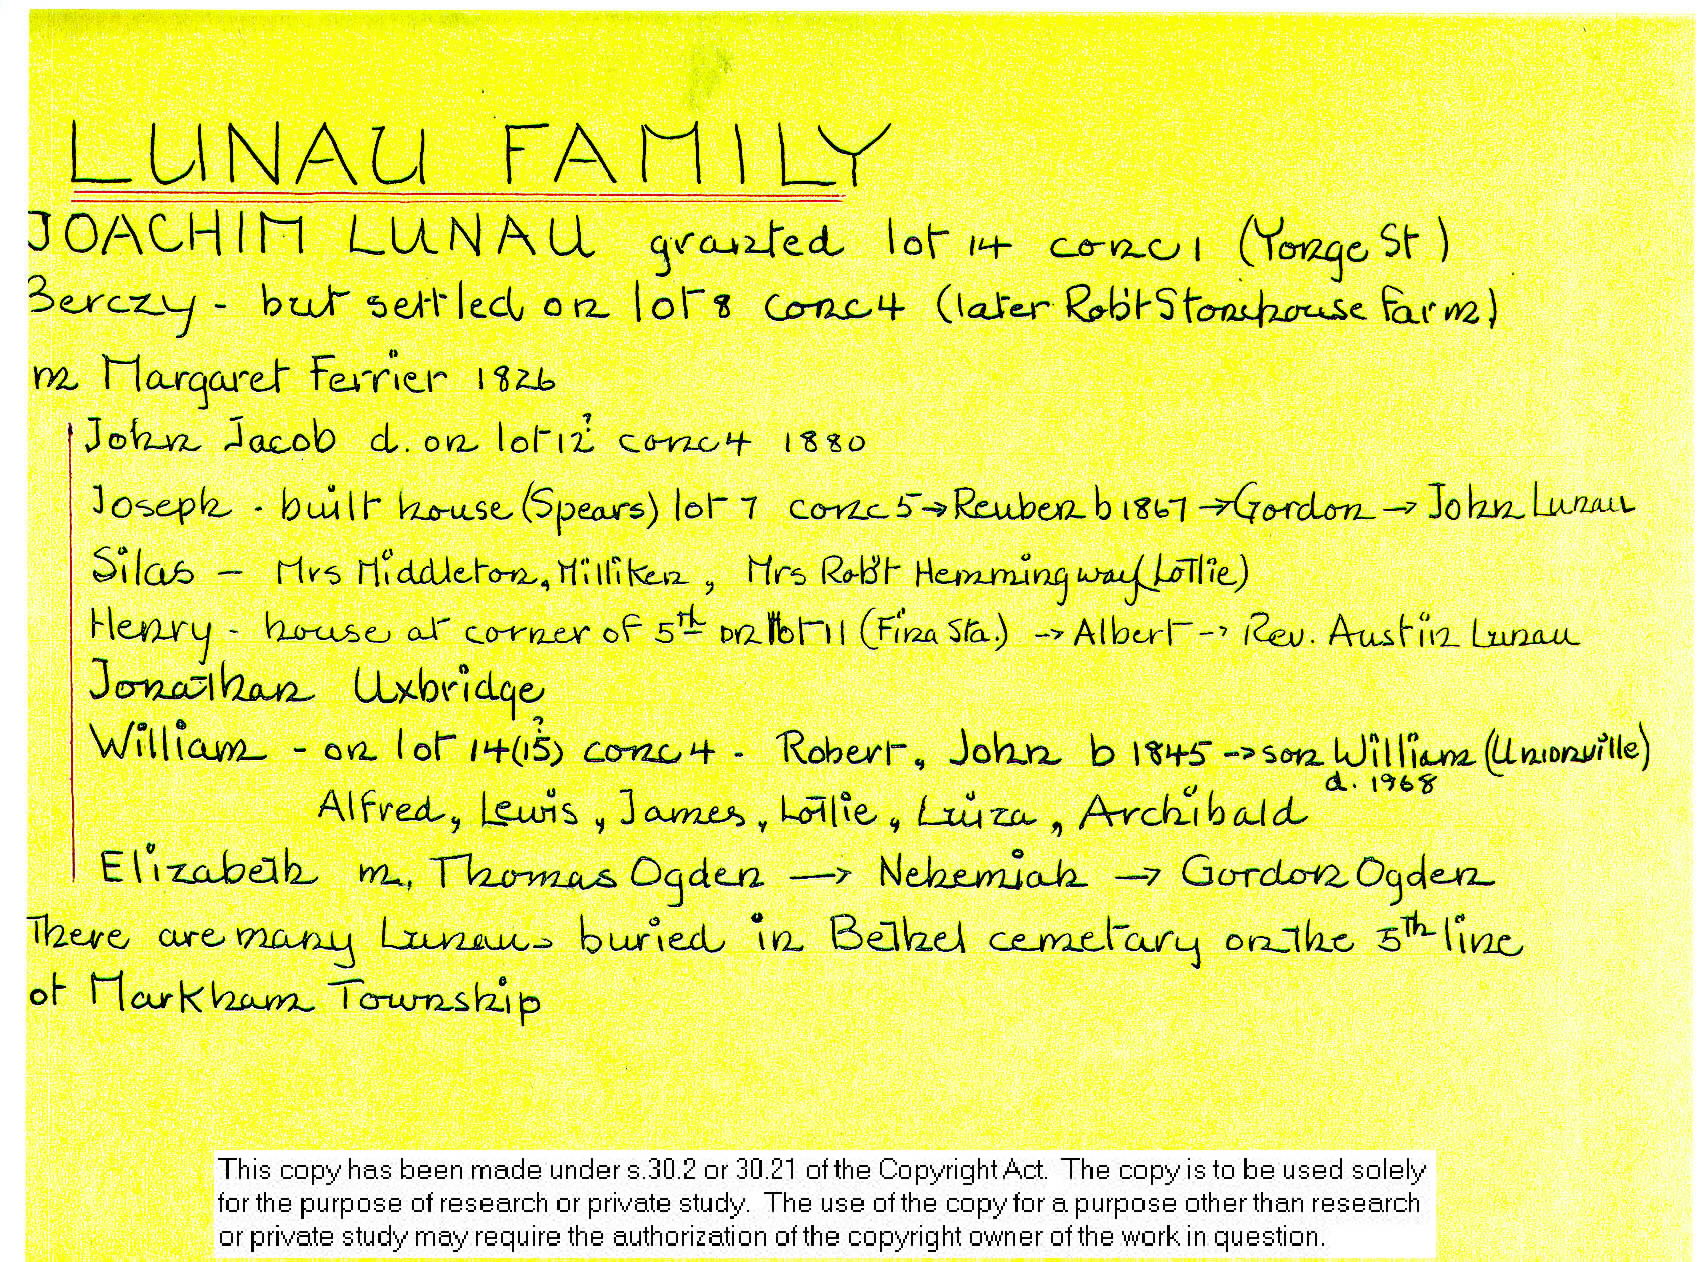 LUNAU FAMILY
JOACHIM LUNAU granted lot 14 conc 1 (Yonge St)
Berczy - but settled on lot 8 conc 4 (later Rob't Stonehouse Farm)
m Margaret Ferrier 1826
John Jacob d. on lot 12? conc 4 1880
Joseph - built house (Spears) lot 7 conc 5 → Reuben b 1867 → Gordon → John Lunau
Silas - Mrs Middleton, Milliken, Mrs Rob't Hemmingway (Lottie)
Henry - house at corner of 5th on lot 11 (Fina Sta.) → Albert → Rev. Austin Lunau
Jonathan Uxbridge
William - on lot 14 (15?) conc 4 - Robert, John b 1845 → son William (Unionville)
d. 1968
Alfred, Lewis, James, Lottie, Luiza, Archibald
Elizabeth m, Thomas Ogden → Nehemiah → Gordon Ogden
There are many Lunaus buried in Bethel cemetary on the 5th line
of Markham Township
This copy has been made under s.30.2 or 30.21 of the Copyright Act. The copy is to be used solely
for the purpose of research or private study. The use of the copy for a purpose other than research
or private study may require the authorization of the copyright owner of the work in question.